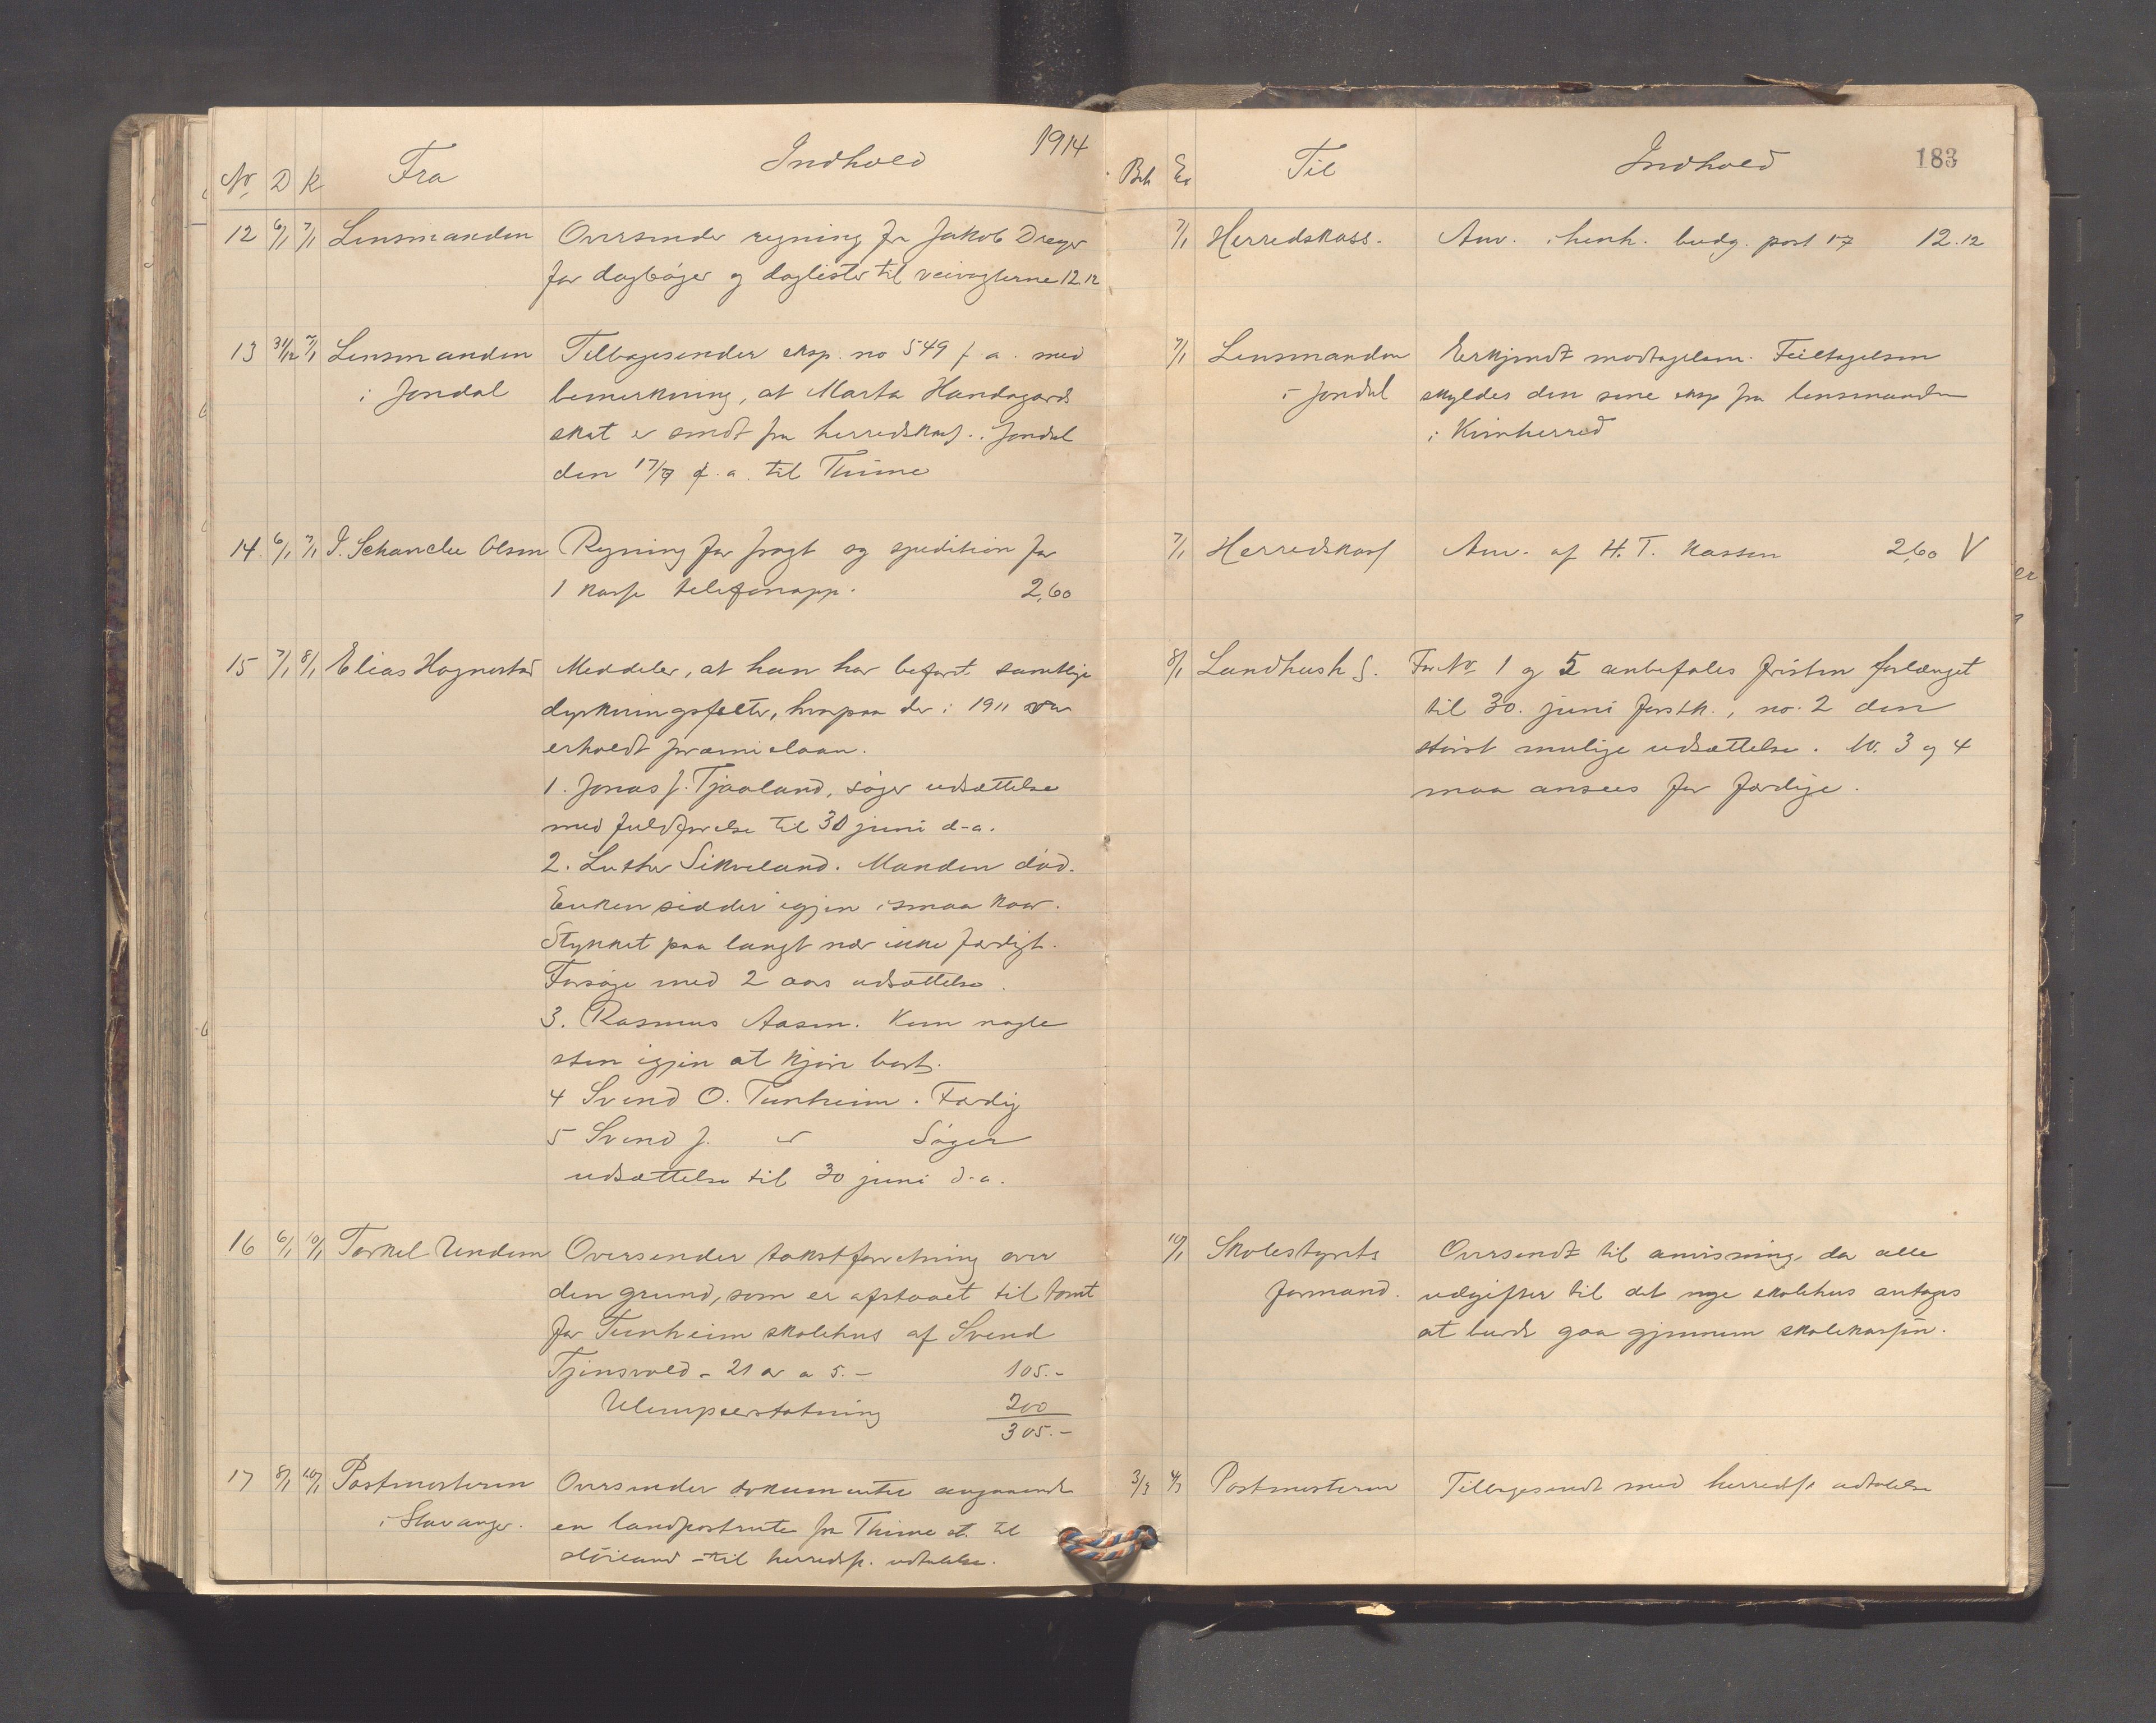 1914
No. D K Fra Indhold
12 6/1 7/1 Lensmanden Oversender regning fra Jakob Dreyer
for dagbøger og daglister til veivogterne 12.12
13 31/12 7/1 Lensmanden Tilbagesender eksp. no 549 f. a. med
i Jondal bemerkning, at Marta Handagards
skat er sendt fra herredskas. i Jondal
den 17/7 f. a. til Thime
14 6/1 7/1 J. Schanche Olsen Regning for fragt og spedition for
1 kasse telefonapp. 2,60
15 7/1 8/1 Elias Hognestad Meddeler, at han har befart samtlige
dyrkningsfelter, hvorpaa der i 1911 var
erholdt præmielaan.
1. Jonas J. Tjaaland, søger udsættelse
med fuldførelse til 30 juni d-a.
2. Luther Sikveland. Manden død.
Enken sidder igjen i smaa kaar.
Stykket paa langt nær ikke færdigt.
Forsøge med 2 aars udsættelse.
3. Rasmus Aasen. Kun nogle
sten igjen at kjøre bort.
4 Svend O. Tunheim. Færdig
5 Svend J. " Søger
udsættelse til 30 juni d-a.
16 6/1 10/1 Torkel Undem Oversender takstforretning over
den grund, som er afstaaet til tomt
for Tunheim skolehus af Svend
Tjensvold - 21 ar a 5.- 105.-
Ulempeerstatning 200
305.-
17 8/1 10/1 Postmesteren Oversender dokumenter angaaende
i Stavanger. en landpostrute fra Thime st. til
Höiland - til herredsst. udtalelse.
183
Beh Ex Til Indhold
7/1 Herredskass. Anv. i henh. budg. post 17 12.12
7/1 Lensmanden Erkjendt modtagelsen. Feiltagelsen
i Jondal skyldes den sene eksp fra lensmanden
i Kvinherred
7/1 Herredskass Anv. af H. T. Kassen 2,60 V
8/1 Landhush S. For No 1 og 5 anbefales fristen forlænget
til 30. juni førstk., no. 2 den
størst mulige udsættelse. No. 3 og 4
maa ansees for færdige.
10/1 Skolestyrets Oversendt til anvisning, da alle
formand. udgifter til det nye skolehus antages
at burde gaa gjennem skolekassen.
3/3 4/3 Postmesteren Tilbagesendt med herredsst udtalelse